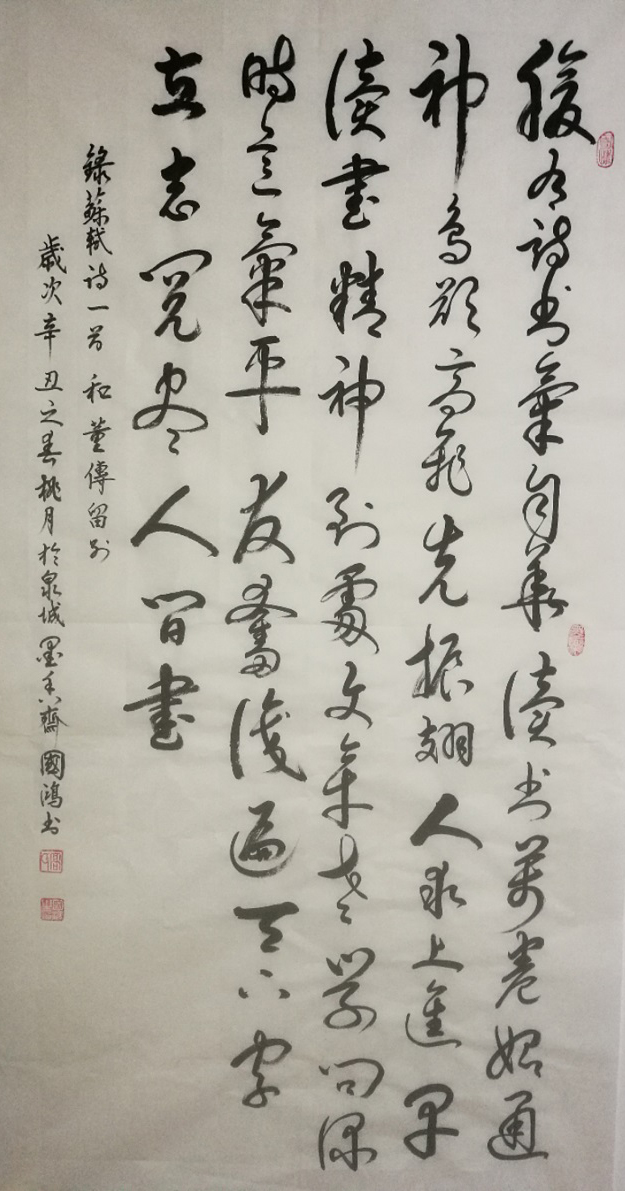 腹有诗书氣自華讀书萬卷始通
神鸟欲高飛先振翅人求上進早
讀書精神到處文章老學问深
時意氣平发奮識遍天下字
立志閱尽人间書
錄蘇軾诗一首 和董傳留别
歲次辛丑之春桃月於泉城墨香齋國鴻书